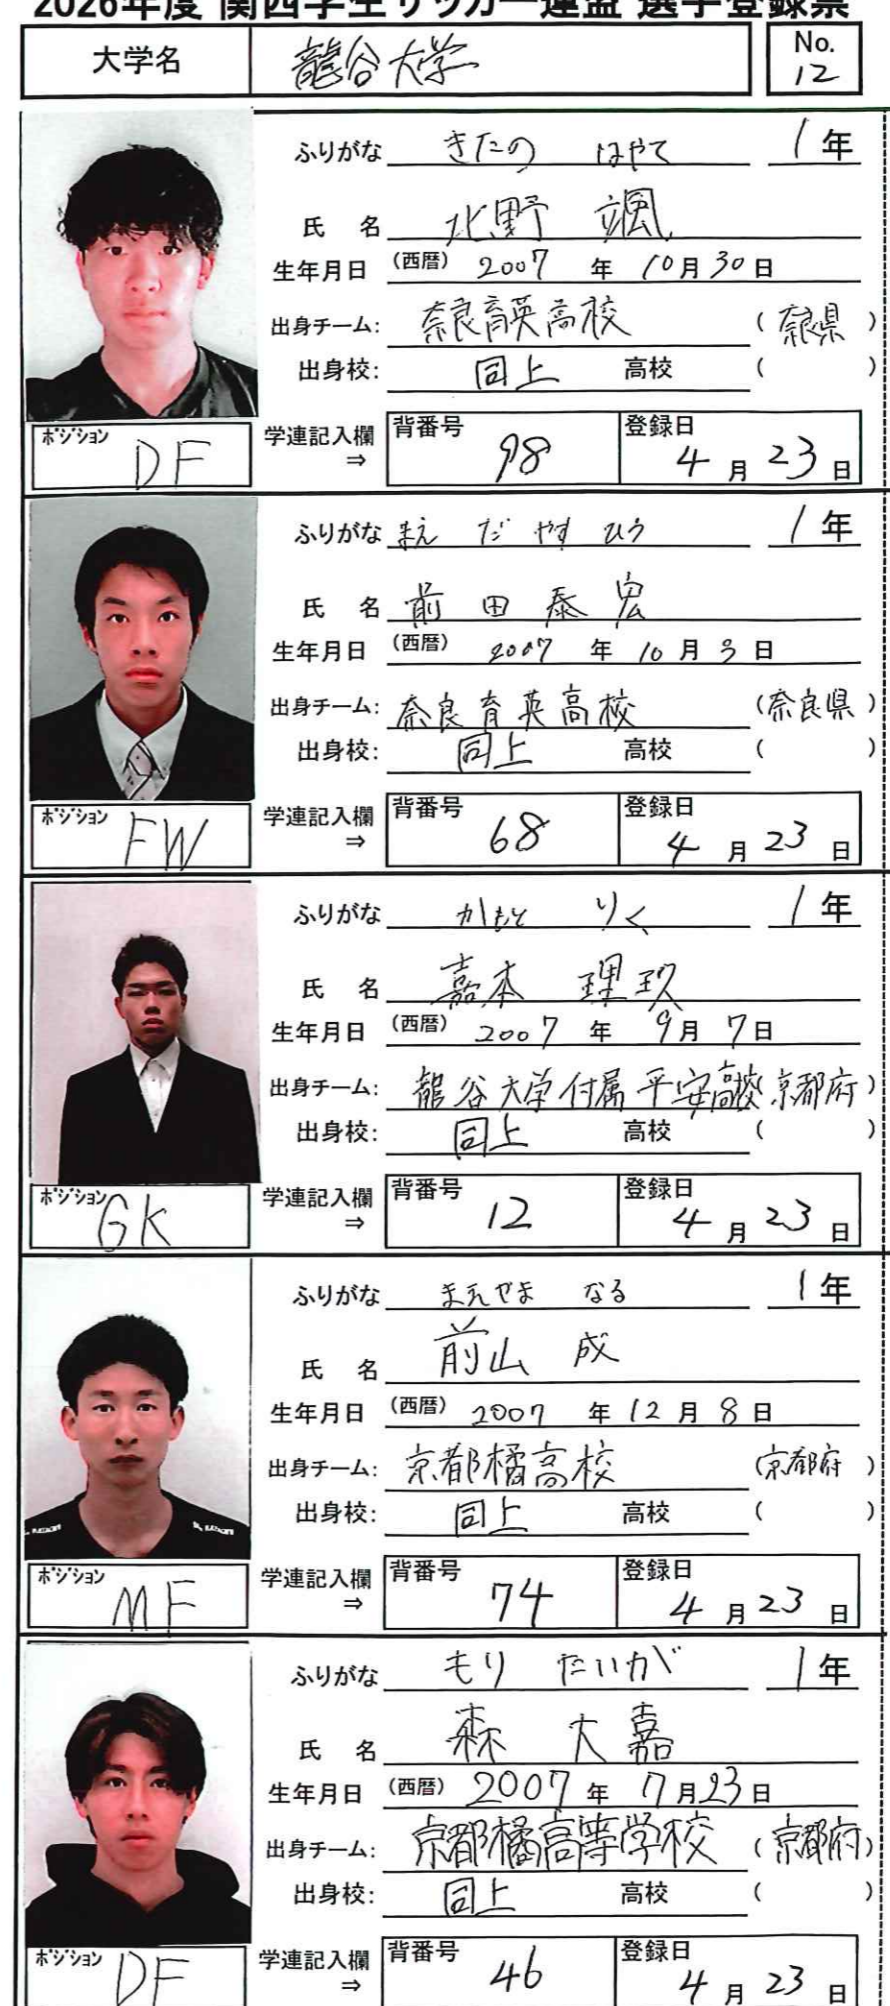 2026年度 関西学生サッカー連盟 選手登録票
大学名 龍谷大学 No. 12
ふりがな きたの はやて 1年
氏 名 北野 颯
生年月日 (西暦) 2007 年 10月30日
出身チーム: 奈良育英高校 (奈良県)
出身校: 同上 高校 ( )
ポジション DF 学連記入欄 ⇒ 背番号 98 登録日 4月23日
ふりがな まえ だ やす ひろ 1年
氏 名 前田泰宏
生年月日 (西暦) 2007 年 10月3日
出身チーム: 奈良育英高校 (奈良県)
出身校: 同上 高校 ( )
ポジション FW 学連記入欄 ⇒ 背番号 68 登録日 4月23日
ふりがな かもと りく 1年
氏 名 嘉本 理玖
生年月日 (西暦) 2007 年 9月7日
出身チーム: 龍谷大学付属平安高校 京都府)
出身校: 同上 高校 ( )
ポジション GK 学連記入欄 ⇒ 背番号 12 登録日 4月23日
ふりがな まえやま なる 1年
氏 名 前山 成
生年月日 (西暦) 2007 年 12月8日
出身チーム: 京都橘高校 (京都府)
出身校: 同上 高校 ( )
ポジション MF 学連記入欄 ⇒ 背番号 74 登録日 4月23日
ふりがな もり たいが 1年
氏 名 森 大嘉
生年月日 (西暦) 2007年 7月23日
出身チーム: 京都橘高等学校 (京都府)
出身校: 同上 高校 ( )
ポジション DF 学連記入欄 ⇒ 背番号 46 登録日 4月23日